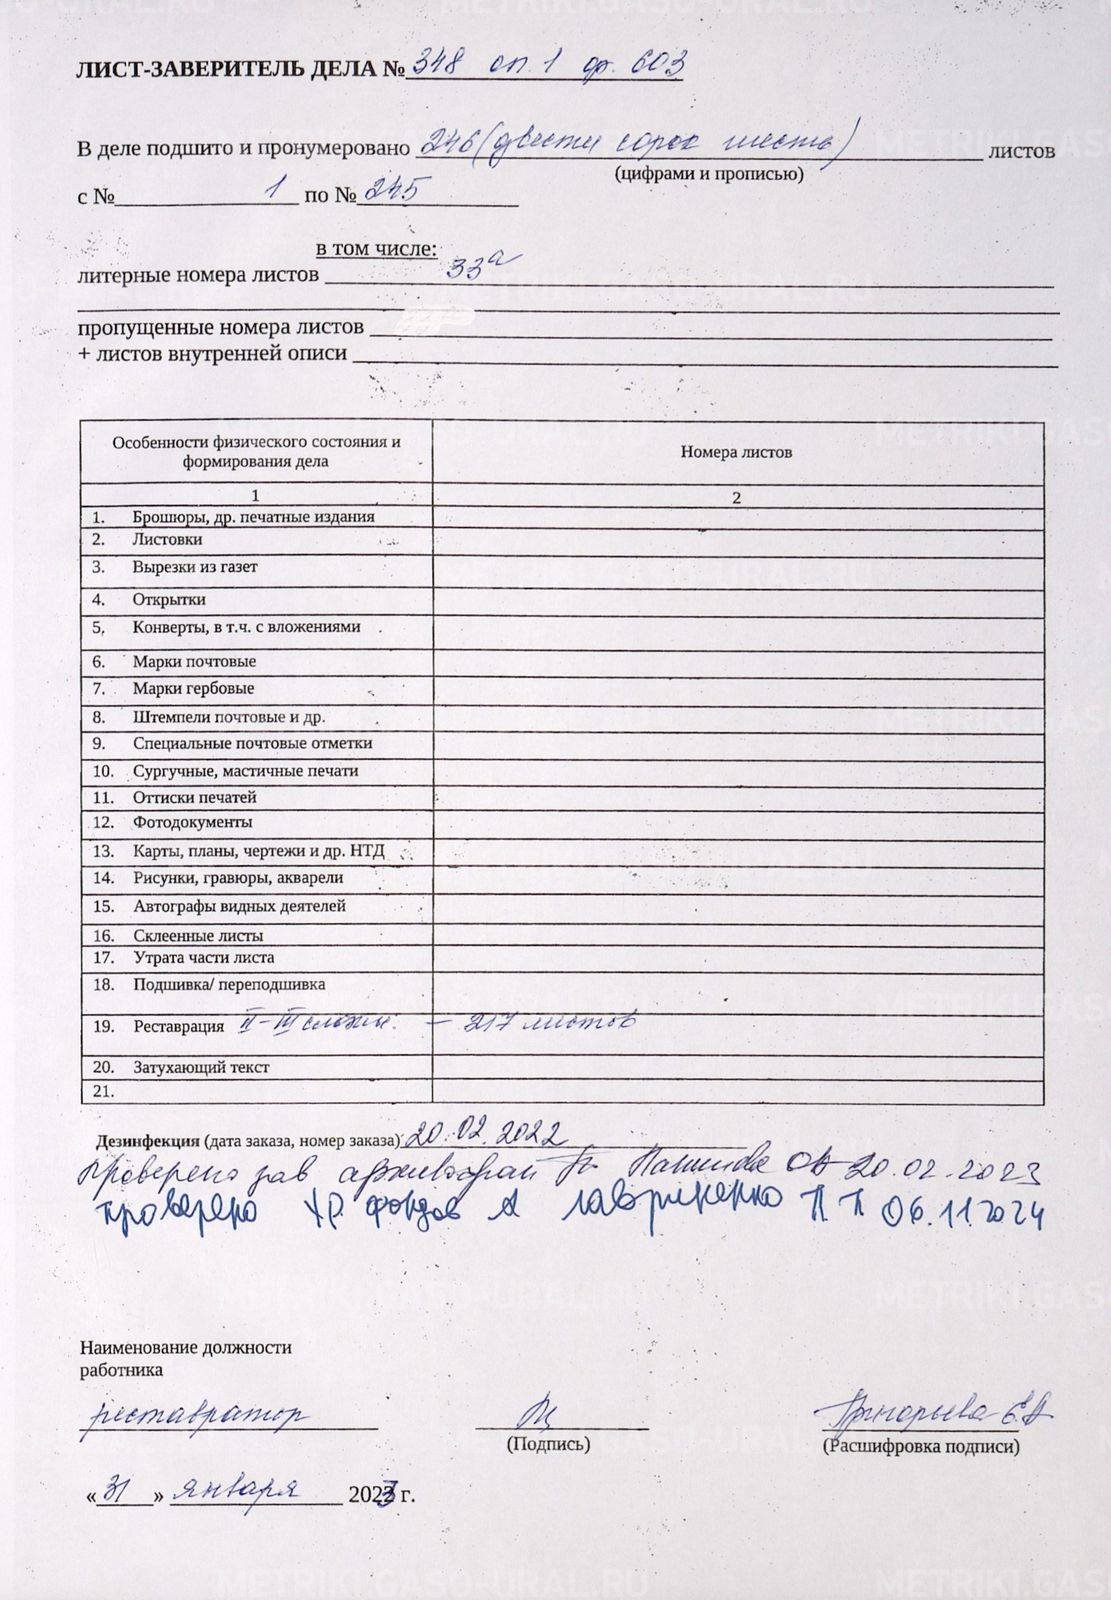 ЛИСТ-ЗАВЕРИТЕЛЬ ДЕЛА № 348 оп. 1 ф. 603
В деле подшито и пронумеровано 246 (двести сорок шесть) листов
(цифрами и прописью)
с № 1 по № 245
в том числе:
литерные номера листов 33а
пропущенные номера листов
+ листов внутренней описи
Особенности физического состояния и формирования дела Номера листов
1 2
1. Брошюры, др. печатные издания
2. Листовки
3. Вырезки из газет
4. Открытки
5. Конверты, в т.ч. с вложениями
6. Марки почтовые
7. Марки гербовые
8. Штемпели почтовые и др.
9. Специальные почтовые отметки
10. Сургучные, мастичные печати
11. Оттиски печатей
12. Фотодокументы
13. Карты, планы, чертежи и др. НТД
14. Рисунки, гравюры, акварели
15. Автографы видных деятелей
16. Склеенные листы
17. Утрата части листа
18. Подшивка/ переподшивка
19. Реставрация II-III сложн. – 217 листов
20. Затухающий текст
21.
Дезинфекция (дата заказа, номер заказа) 20.02.2022
Проверено зав архивохран 20.02.2023
проверено хр. фондов Лавриненко П П 06.11.2024
Наименование должности
работника
реставратор Григорьева Е.А
(Подпись) (Расшифровка подписи)
«31» января 2023 г.
METRIKI.GASO-URAL.RU